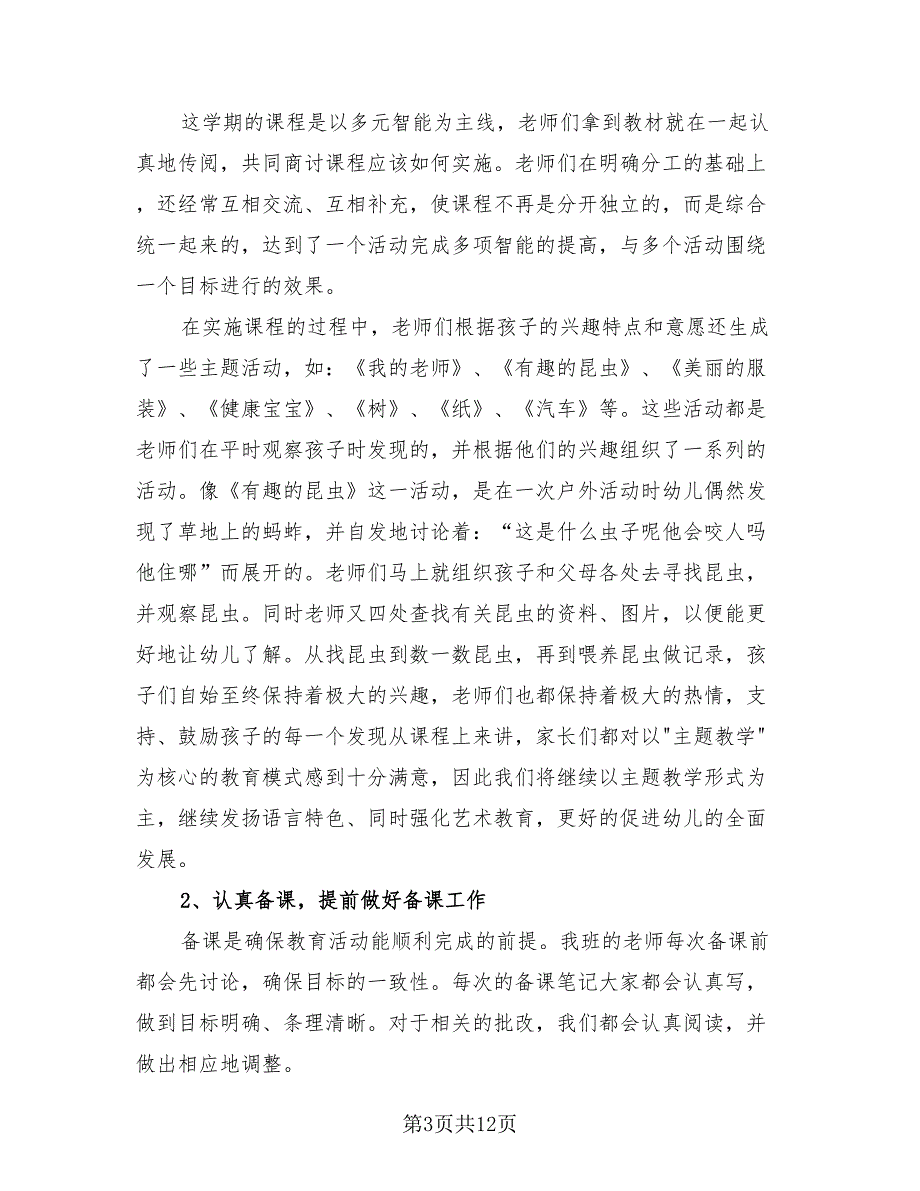 这学期的课程是以多元智能为主线，老师们拿到教材就在一起认
真地传阅，共同商讨课程应该如何实施。老师们在明确分工的基础上
，还经常互相交流、互相补充，使课程不再是分开独立的，而是综合
统一起来的，达到了一个活动完成多项智能的提高，与多个活动围绕
一个目标进行的效果。
在实施课程的过程中，老师们根据孩子的兴趣特点和意愿还生成
了一些主题活动，如：《我的老师》、《有趣的昆虫》、《美丽的服
装》、《健康宝宝》、《树》、《纸》、《汽车》等。这些活动都是
老师们在平时观察孩子时发现的，并根据他们的兴趣组织了一系列的
活动。像《有趣的昆虫》这一活动，是在一次户外活动时幼儿偶然发
现了草地上的蚂蚱，并自发地讨论着：“这是什么虫子呢他会咬人吗
他住哪”而展开的。老师们马上就组织孩子和父母各处去寻找昆虫，
并观察昆虫。同时老师又四处查找有关昆虫的资料、图片，以便能更
好地让幼儿了解。从找昆虫到数一数昆虫，再到喂养昆虫做记录，孩
子们自始至终保持着极大的兴趣，老师们也都保持着极大的热情，支
持、鼓励孩子的每一个发现从课程上来讲，家长们都对以"主题教学"
为核心的教育模式感到十分满意，因此我们将继续以主题教学形式为
主，继续发扬语言特色、同时强化艺术教育，更好的促进幼儿的全面
发展。
2、认真备课，提前做好备课工作
备课是确保教育活动能顺利完成的前提。我班的老师每次备课前
都会先讨论，确保目标的一致性。每次的备课笔记大家都会认真写，
做到目标明确、条理清晰。对于相关的批改，我们都会认真阅读，并
做出相应地调整。
第3页共12页